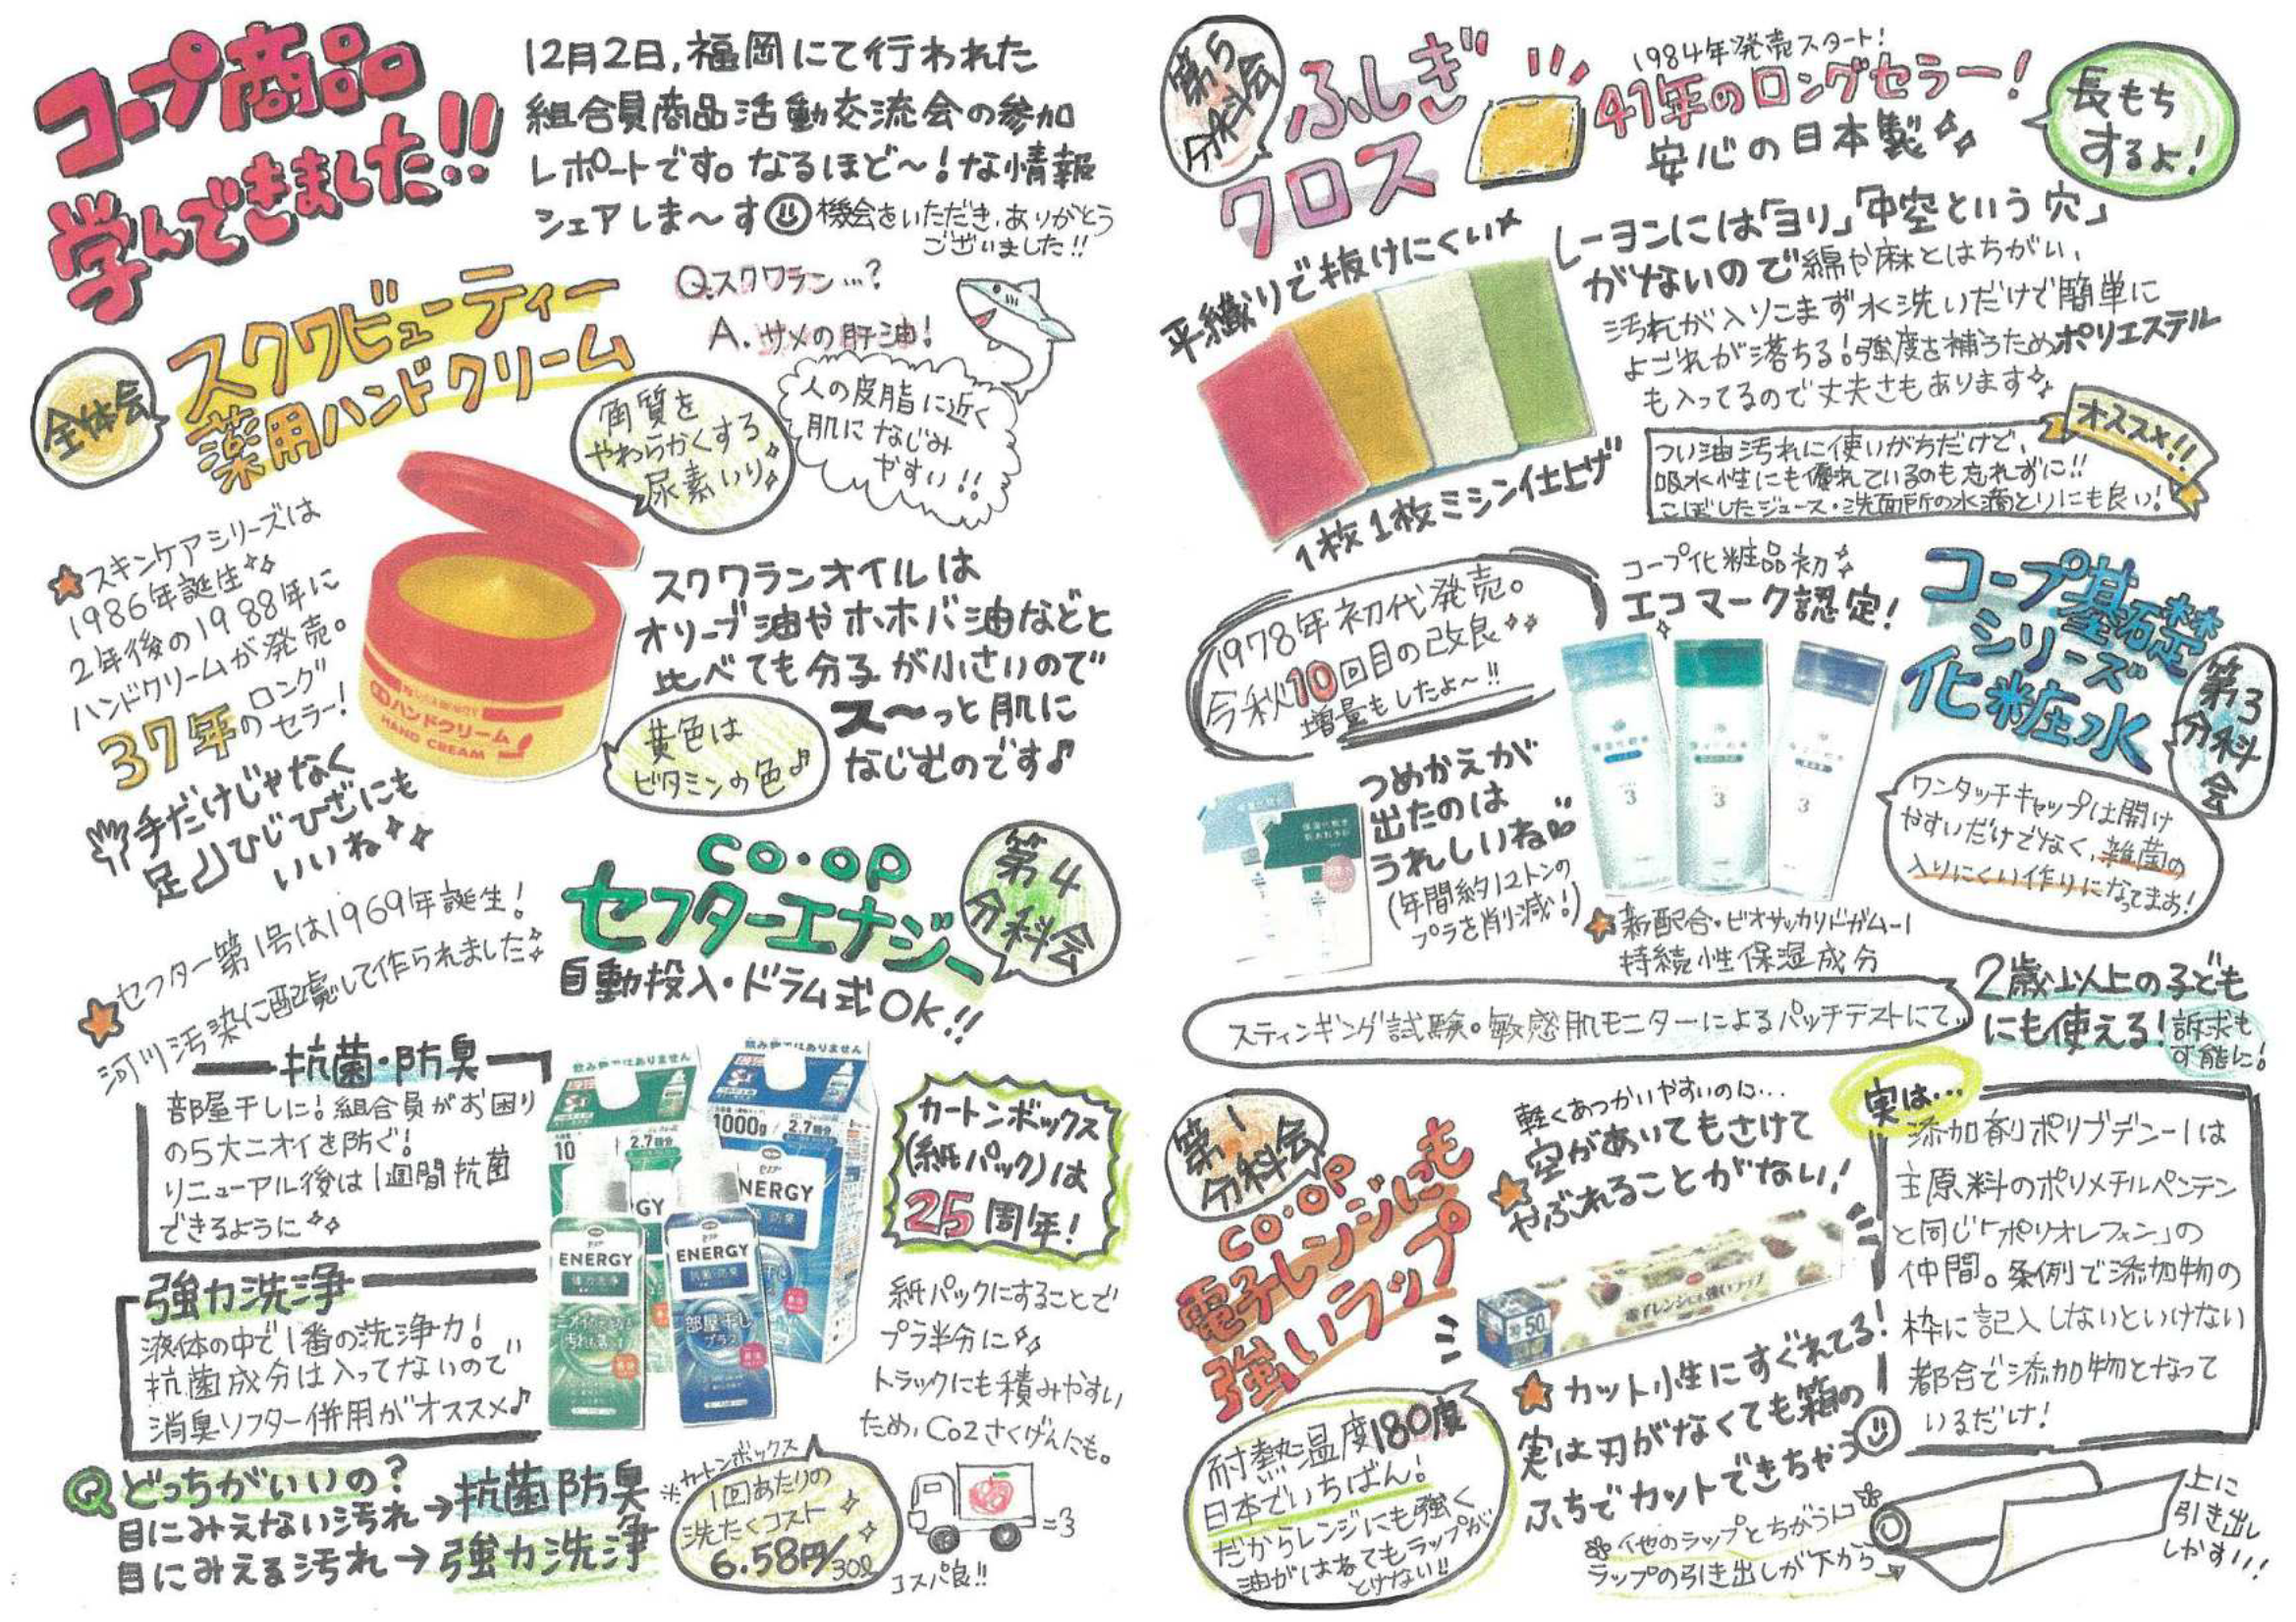 コープ商品
学んできました!!
12月2日,福岡にて行われた
組合員商品活動交流会の参加
レポートです。なるほど〜!な情報
シェアしま〜す
機会をいただき,ありがとう
ございました!!
全体会
スクワビューティー
薬用ハンドクリーム
Q.スクワラン…?
A.サメの肝油!
人の皮脂に近く
肌になじみ
やすい!!
角質を
やわらかくする
尿素いり
★スキンケアシリーズは
1986年誕生
2年後の1988年に
ハンドクリームが発売。
37年のロング
セラー!
手だけじゃなく
足ひじひざにも
いいね
ハンドクリーム
HAND CREAM
スクワランオイルは
オリーブ油やホホバ油などと
比べても分子が小さいので
ス〜っと肌に
なじむのです♪
黄色は
ビタミンの色♪
CO・OP
セフターエナジー
第4
分科会
自動投入・ドラム式OK!!
★セフター第1号は1969年誕生!
河川汚染に配慮して作られました
抗菌・防臭
部屋干しに!組合員がお困り
の5大ニオイを防ぐ!
リニューアル後は1週間抗菌
できるように
強力洗浄
液体の中で1番の洗浄力!
抗菌成分は入ってないので
消臭ソフター併用がオススメ♪
飲み物ではありません
飲み物ではありません
10
2.7回分
1000g
2.7回分
ENERGY
ENERGY
強力洗浄
ENERGY
抗菌・防臭
部屋干し
プラス
カートンボックス
(紙パック)は
25周年!
紙パックにすることで
プラ半分に
トラックにも積みやすい
ため,Co2さくげんにも。
Qどっちがいいの?
目にみえない汚れ→抗菌防臭
目にみえる汚れ→強力洗浄
※カートンボックス
1回あたりの
洗たくコスト
6.58円/30ℓ
コスパ良!!
第5
分科会
ふしぎ
クロス
1984年発売スタート!
41年のロングセラー!
安心の日本製
長もち
するよ!
平織りで抜けにくい
1枚1枚ミシン仕上げ
レーヨンには「ヨリ」「中空という穴」
がないので綿や麻とはちがい,
汚れが入りこまず水洗いだけで簡単に
よごれが落ちる!強度を補うためポリエステル
も入ってるので丈夫さもあります
オススメ!!
つい油汚れに使いがちだけど,
吸水性にも優れているのも忘れずに!!
こぼしたジュース・洗面所の水滴とりにも良い!
1978年初代発売。
今秋10回目の改良
増量もしたよ〜!!
コープ化粧品初
エコマーク認定!
コープ基礎
シリーズ
化粧水
第3
分科会
3
3
3
つめかえが
出たのは
うれしいね
(年間約12トンの
プラを削減!)
ワンタッチキャップは開け
やすいだけでなく,雑菌の
入りにくい作りになってます!
★新配合・ビオサッカリドガム-1
持続性保湿成分
スティンギング試験。敏感肌モニターによるパッチテストにて
2歳以上の子ども
にも使える!
訴求も
可能に!
第1
分科会
CO・OP
電子レンジにも
強いラップ
軽くあつかいやすいのに…
★空があいてもさけて
やぶれることがない!
50
電子レンジにも強いラップ
★カット性にすぐれてる!
実は刃がなくても箱の
ふちでカットできちゃう
耐熱温度180度
日本でいちばん!
だからレンジにも強く
油がはねてもラップが
とけない!!
実は…
添加剤ポリブデン-1は
主原料のポリメチルペンテン
と同じ「ポリオレフィン」の
仲間。条例で添加物の
枠に記入しないといけない
都合で添加物となって
いるだけ!
他のラップとちがうトコ
ラップの引き出しが下から→
上に
引き出し
しかす!!!